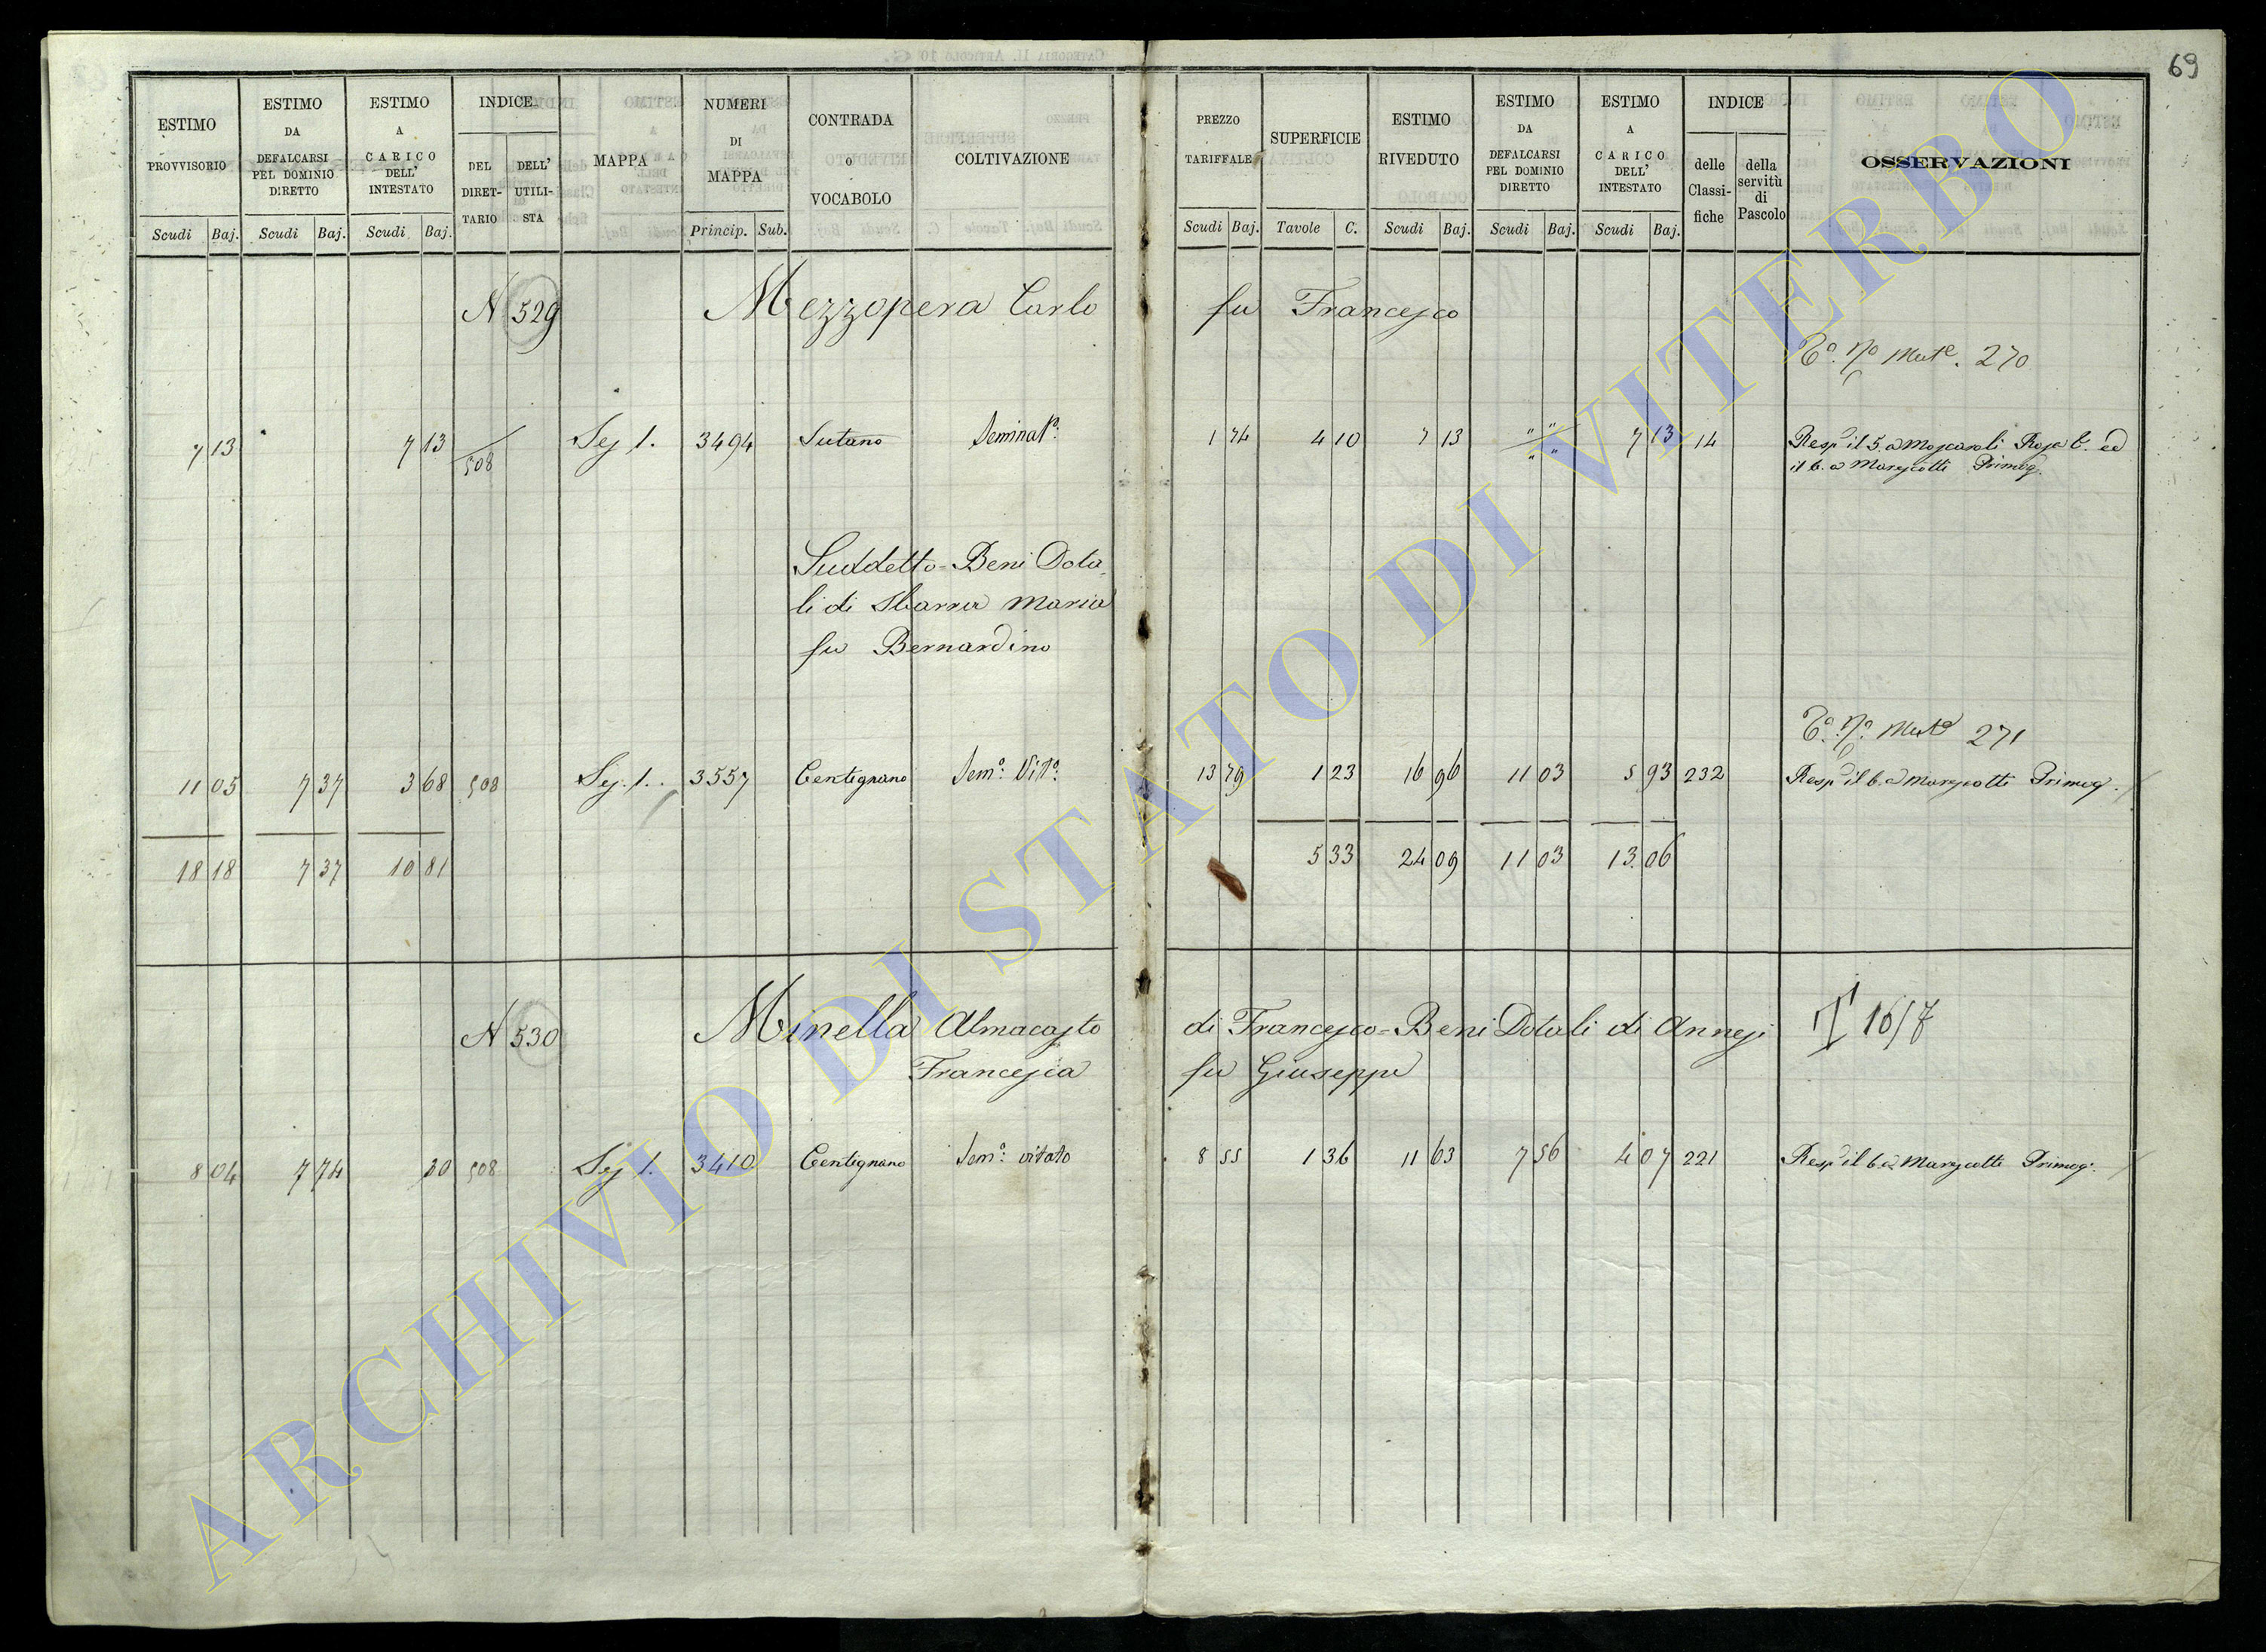 69
ESTIMO PROVVISORIO
Scudi Baj.
ESTIMO DA DEFALCARSI PEL DOMINIO DIRETTO
Scudi Baj.
ESTIMO A CARICO DELL' INTESTATO
Scudi Baj.
INDICE
DEL DIRET-TARIO
DELL' UTILI-STA
MAPPA
NUMERI DI MAPPA
Princip. Sub.
CONTRADA o VOCABOLO
COLTIVAZIONE
PREZZO TARIFFALE
Scudi Baj.
SUPERFICIE
Tavole C.
ESTIMO RIVEDUTO
Scudi Baj.
ESTIMO DA DEFALCARSI PEL DOMINIO DIRETTO
Scudi Baj.
ESTIMO A CARICO DELL' INTESTATO
Scudi Baj.
INDICE
delle Classi-fiche
della servitù di Pascolo
OSSERVAZIONI
N 529 Mezzopera Carlo fu Francesco
Mut.e 270
7 13 7 13 508 Sez 1. 3494 Sutano Seminat.o 1 74 4 10 7 13 " " " " 7 13 14 Resp il 5. a Moscaroli Rosa C. ed
il 6. a Marescotti Primog.
Suddetto = Beni Dota
li di Sbarra Maria
fu Bernardino
Mut.e 271
11 05 7 37 3 68 508 Sez. 1. 3557 Centignano Sem.o Vit.o 13 79 1 23 16 96 11 03 5 93 232 Resp il 6. a Marescotti Primog.
18 18 7 37 10 81 5 33 24 09 11 03 13 06
N 530 Minella Almacasto di Francesco = Beni Dotali di Annesi
Francesca fu Giuseppe
8 04 7 74 30 508 Sez 1. 3410 Centignano Sem.o vitato 8 55 1 36 11 63 7 56 4 07 221 Resp il 6. a Marescotti Primog.
ARCHIVIO DI STATO DI VITERBO